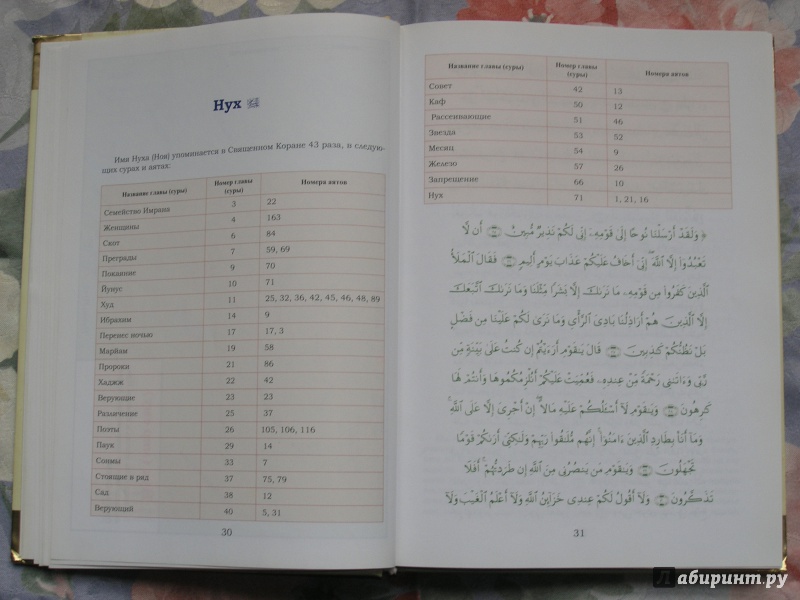 Нух
Имя Нуха (Ноя) упоминается в Священном Коране 43 раза, в следую-
щих сурах и аятах:
Название главы (суры) Номер главы (суры) Номера аятов
Семейство Имрана 3 22
Женщины 4 163
Скот 6 84
Преграды 7 59, 69
Покаяние 9 70
Йунус 10 71
Худ 11 25, 32, 36, 42, 45, 46, 48, 89
Ибрахим 14 9
Перенес ночью 17 17, 3
Марйам 19 58
Пророки 21 86
Хаджж 22 42
Верующие 23 23
Различение 25 37
Поэты 26 105, 106, 116
Паук 29 14
Сонмы 33 7
Стоящие в ряд 37 75, 79
Сад 38 12
Верующий 40 5, 31
30
Название главы (суры) Номер главы (суры) Номера аятов
Совет 42 13
Каф 50 12
Рассеивающие 51 46
Звезда 53 52
Месяц 54 9
Железо 57 26
Запрещение 66 10
Нух 71 1, 21, 16
﴿ وَلَقَدْ أَرْسَلْنَا نُوحًا إِلَىٰ قَوْمِهِۦ إِنِّى لَكُمْ نَذِيرٌ مُّبِينٌ أَن لَّا
تَعْبُدُوٓا۟ إِلَّا ٱللَّهَ ۖ إِنِّىٓ أَخَافُ عَلَيْكُمْ عَذَابَ يَوْمٍ أَلِيمٍ فَقَالَ ٱلْمَلَأُ
ٱلَّذِينَ كَفَرُوا۟ مِن قَوْمِهِۦ مَا نَرَىٰكَ إِلَّا بَشَرًا مِّثْلَنَا وَمَا نَرَىٰكَ ٱتَّبَعَكَ
إِلَّا ٱلَّذِينَ هُمْ أَرَاذِلُنَا بَادِىَ ٱلرَّأْىِ وَمَا نَرَىٰ لَكُمْ عَلَيْنَا مِن فَضْلٍۭ
بَلْ نَظُنُّكُمْ كَـٰذِبِينَ قَالَ يَـٰقَوْمِ أَرَءَيْتُمْ إِن كُنتُ عَلَىٰ بَيِّنَةٍ مِّن
رَّبِّى وَءَاتَىٰنِى رَحْمَةً مِّنْ عِندِهِۦ فَعُمِّيَتْ عَلَيْكُمْ أَنُلْزِمُكُمُوهَا وَأَنتُمْ لَهَا
كَـٰرِهُونَ وَيَـٰقَوْمِ لَآ أَسْـَٔلُكُمْ عَلَيْهِ مَالًا ۖ إِنْ أَجْرِىَ إِلَّا عَلَى ٱللَّهِ ۚ
وَمَآ أَنَا۠ بِطَارِدِ ٱلَّذِينَ ءَامَنُوٓا۟ ۚ إِنَّهُم مُّلَـٰقُوا۟ رَبِّهِمْ وَلَـٰكِنِّىٓ أَرَىٰكُمْ قَوْمًا
تَجْهَلُونَ وَيَـٰقَوْمِ مَن يَنصُرُنِى مِنَ ٱللَّهِ إِن طَرَدتُّهُمْ ۚ أَفَلَا
تَذَكَّرُونَ وَلَآ أَقُولُ لَكُمْ عِندِى خَزَآئِنُ ٱللَّهِ وَلَآ أَعْلَمُ ٱلْغَيْبَ وَلَآ
31
Лабиринт.ру